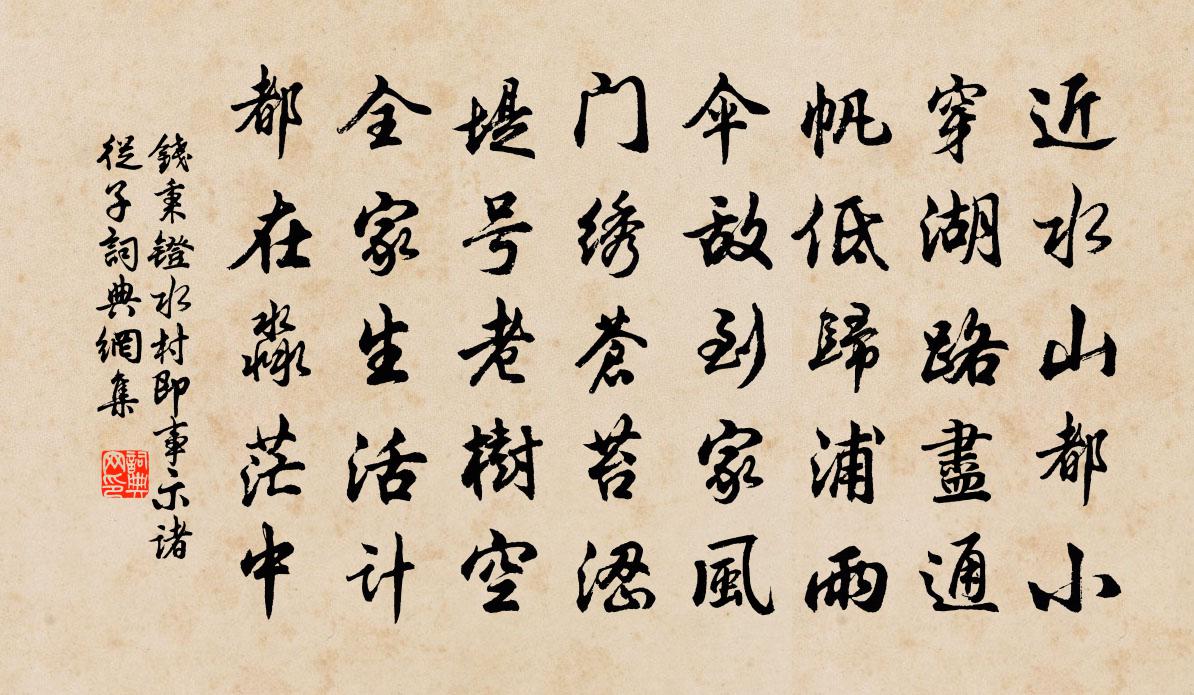 近水山都小
穿湖路盡通
帆低歸浦雨
伞敌到家風
门绣蒼苔涩
堤号老樹空
全家生活计
都在淼茫中
錢秉鐙水村即事示诸
從子詞典網集
詞典网印